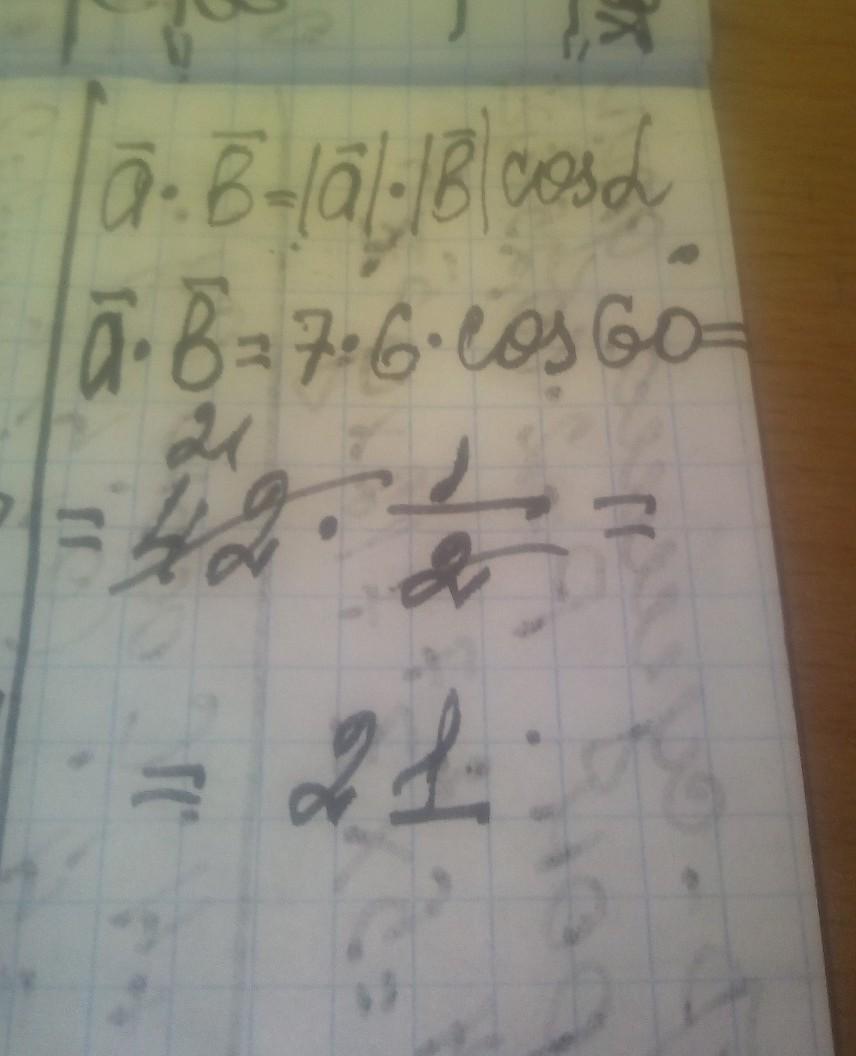 ā · B̄ = |ā| · |B̄| cos α
ā · B̄ = 7 · 6 · cos 60 =
21
= 42 · 1/2 =
= 21